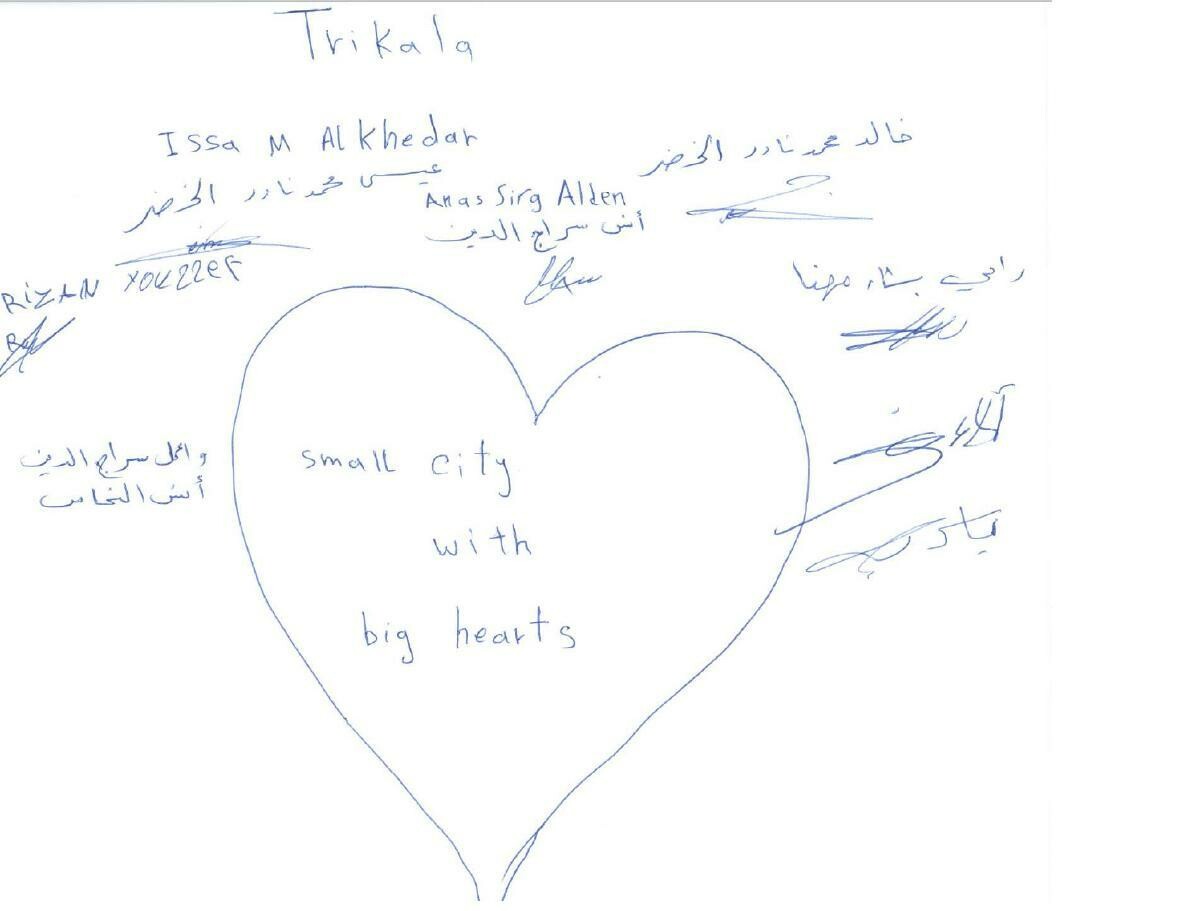 Trikala
Issa M Alkhedar
عيسى محمد نادر الخضر
خالد محمد نادر الخضر
Anas Sirg Alden
أنس سراج الدين
RiZAN
رامي بشار مهنا
وائل سراج الدين
أنس النخاس
small city
with
big hearts